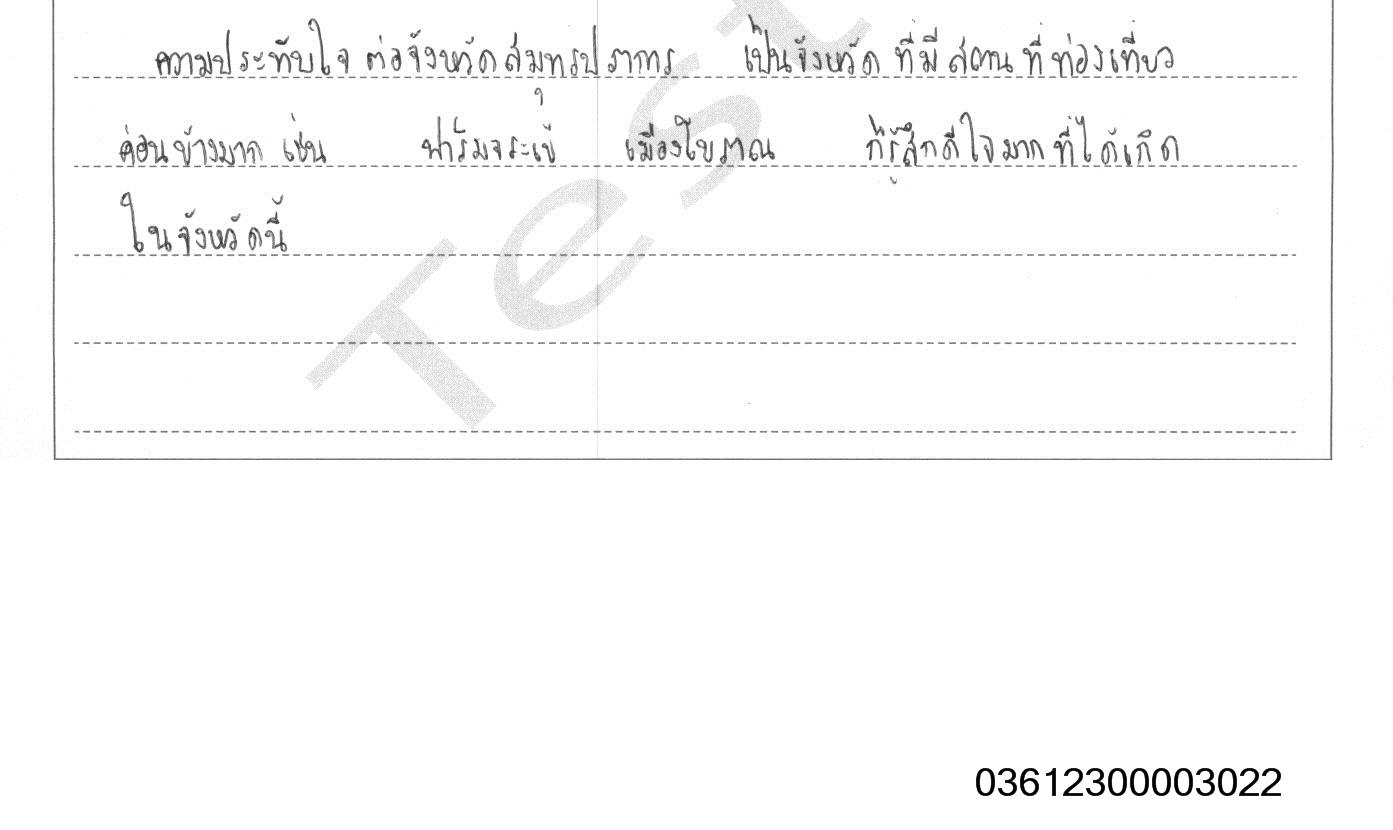 ความประทับใจ ต่อจังหวัดสมุทรปราการ เป็นจังหวัด ที่มี สถานที่ท่องเที่ยว
ค่อนข้างมาก เช่น ฟาร์มจระเข้ เมืองโบราณ ก็รู้สึกดีใจมากที่ได้เกิด
ในจังหวัดนี้
Test
03612300003022